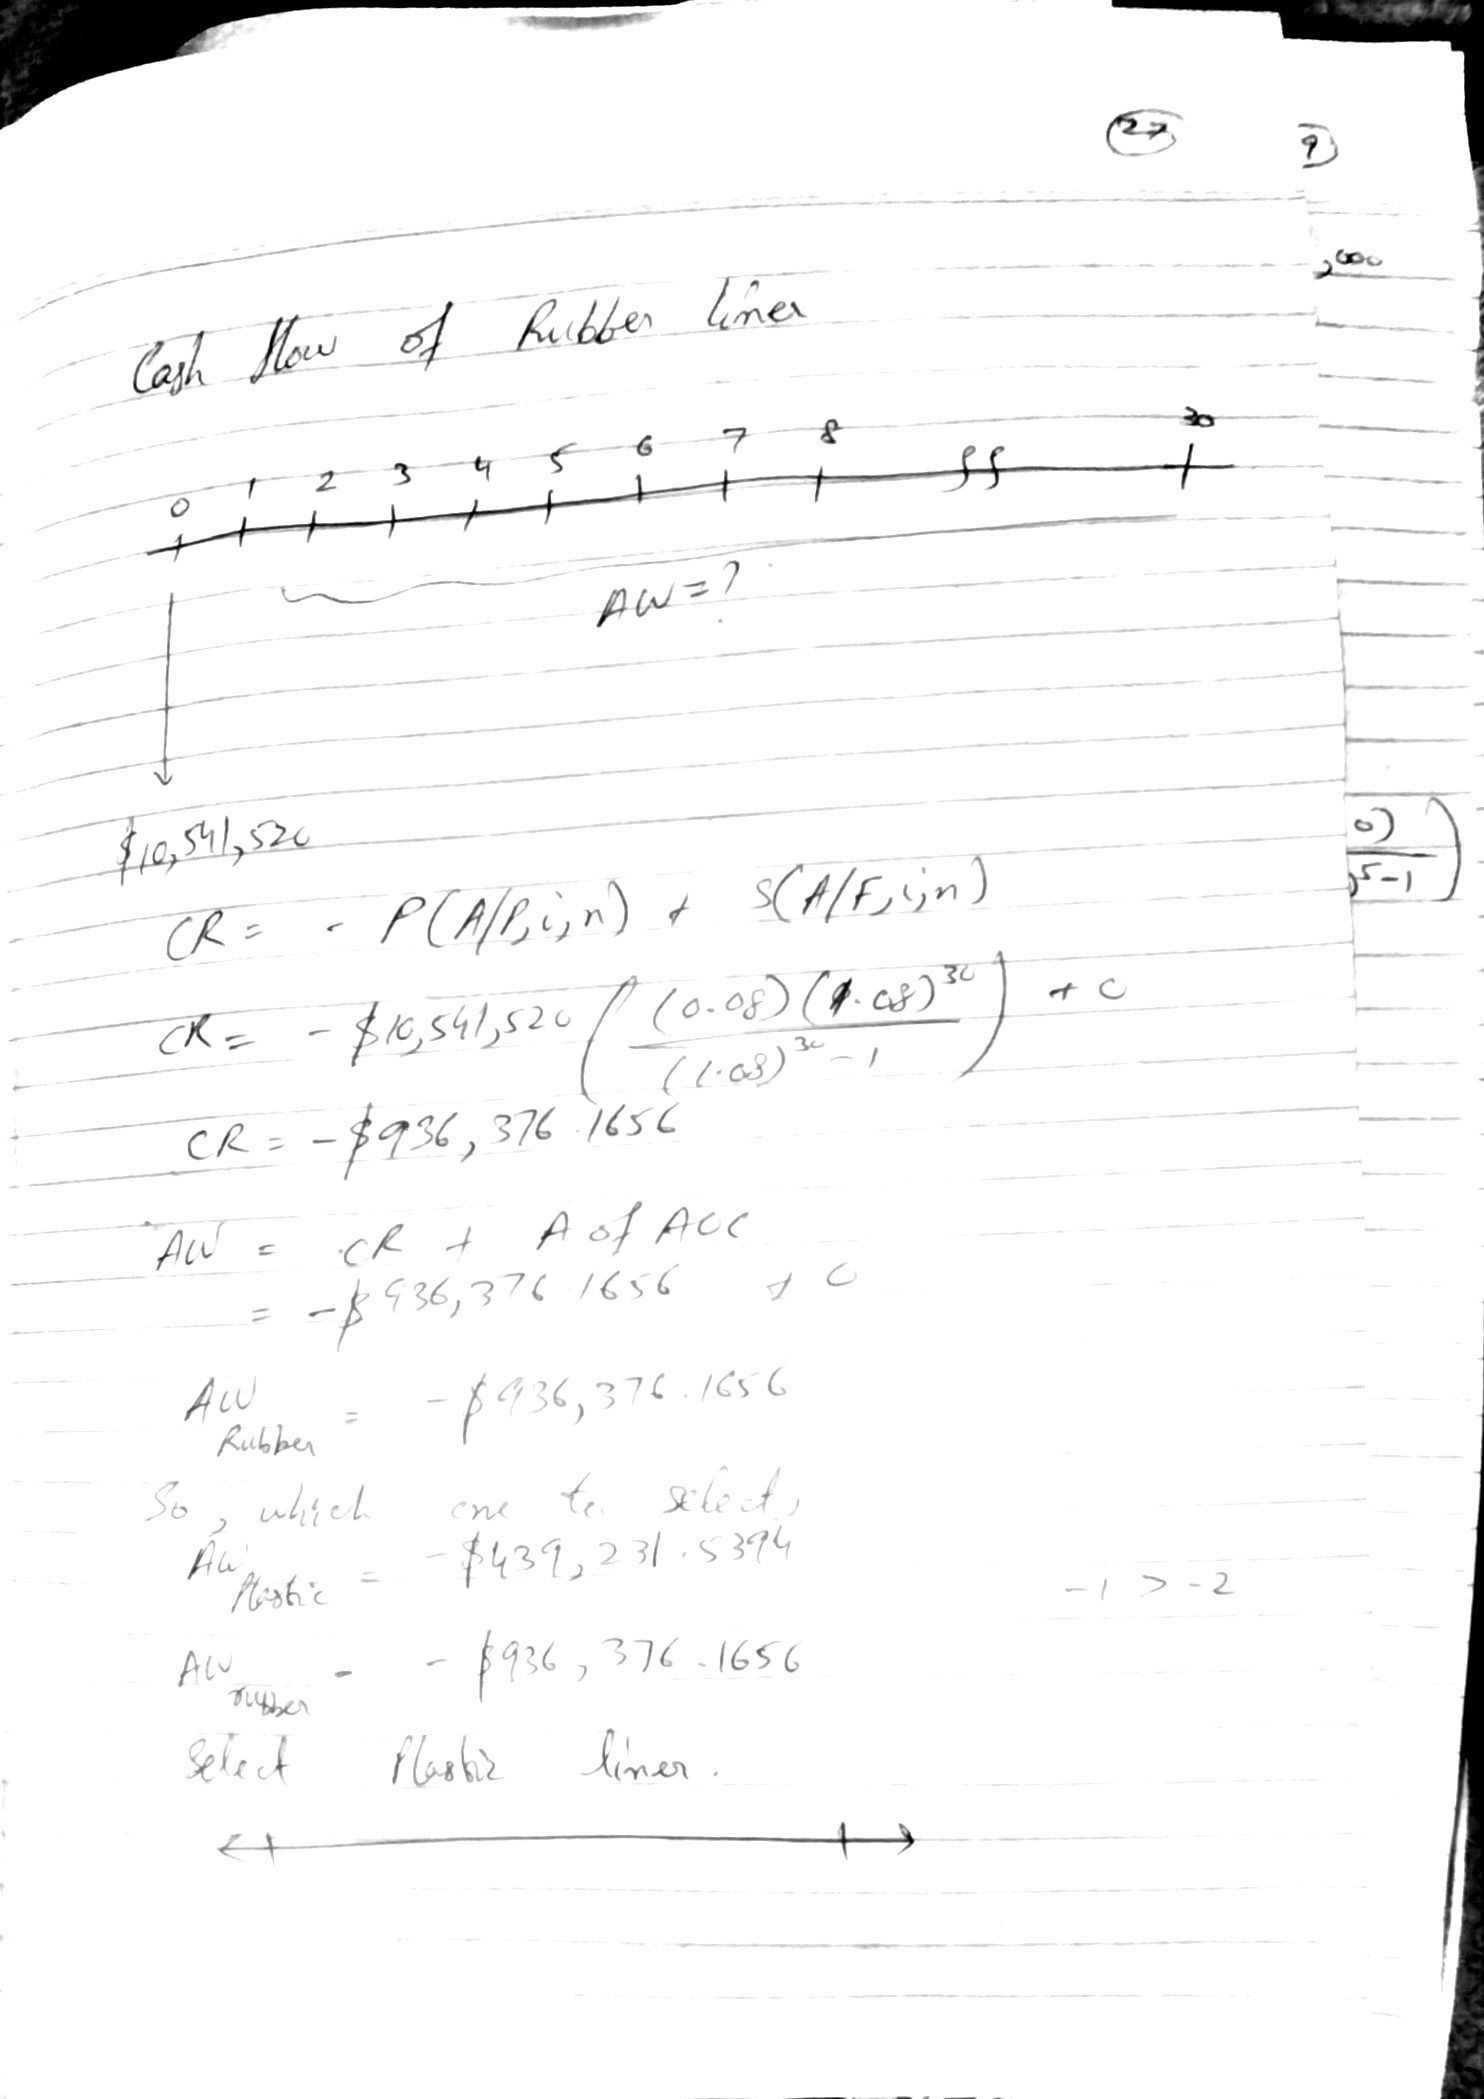 27
9
,000
Cash flow of Rubber liner
0 1 2 3 4 5 6 7 8 30
AW = ?
$10,541,520
0)
5-1
CR = - P(A/P,i,n) + S(A/F,i,n)
CR = - $10,541,520 ( (0.08) (1.08)^30 / (1.08)^30 - 1 ) + 0
CR = - $936,376.1656
AW = CR + A of AOC
= - $936,376.1656 + 0
AW Rubber = - $936,376.1656
So, which one to select,
AW Plastic = - $439,231.5394
-1 > -2
AW rubber = - $936,376.1656
Select Plastic liner.